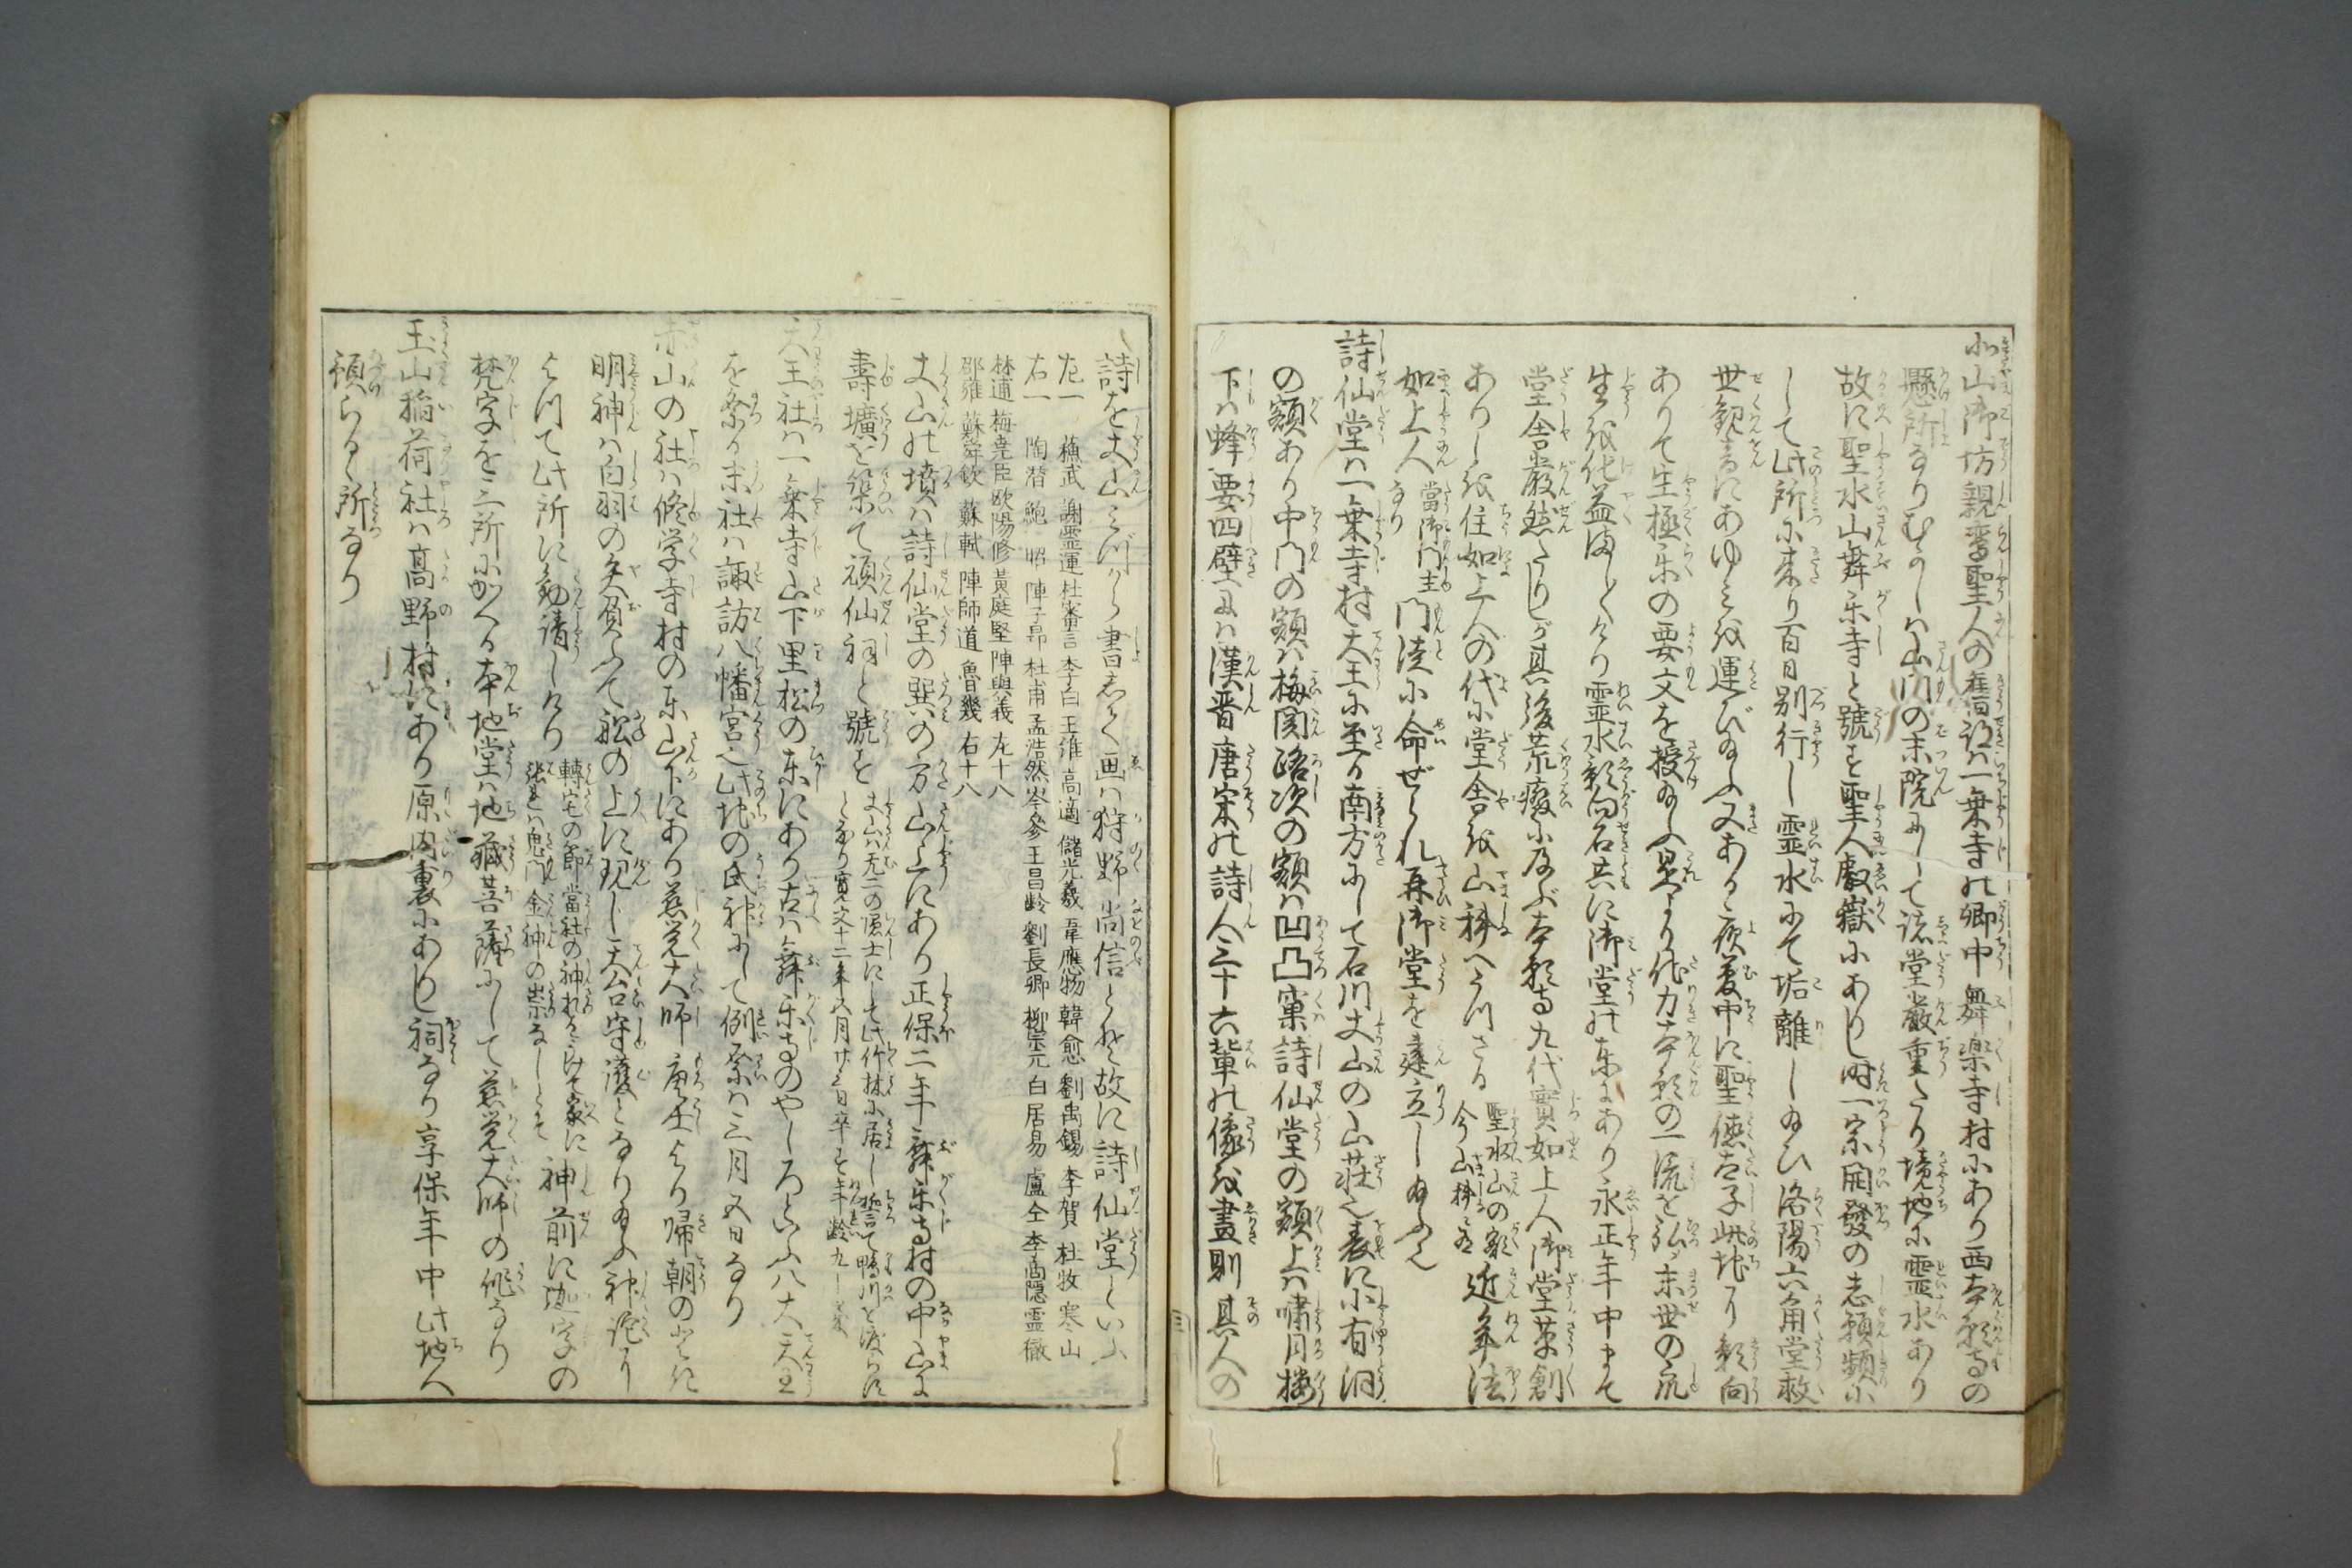 北山御坊親鸞聖人の旧跡は一乗寺の郷中舞楽寺村にあり西本願寺の
懸所なりむかしは山門の末院にして諸堂厳重たり境地に霊水あり
故に聖水山舞楽寺と號す聖人叡嶽にありし時一宗開發の志願頻に
して此所に来り百日別行し霊水にて垢離し給ひ洛陽六角堂救
世観音にあゆみを運び給ふ又ある夜夢中に聖徳太子此地に影向
ありて生極楽の要文を授給ふ是より他力本願の一流を弘め末世の衆
生を化益ましく〳〵けり霊水影向石共に御堂の東にあり永正年中まで
堂舎嚴然たりしが其後荒癈に及ぶ本願寺九代實如上人御堂草創
ありしを住如上人の代に堂舎を山科へうつさる 聖水山の額今山科にあり 近年法
如上人 當御門主なり 門徒に命ぜられ再御堂を建立し給ふ也
詩仙堂は一乗寺村天王に至る南方にして石川丈山の山荘也表に小有洞
の額あり中門の額は梅関路次の額は凹凸窠詩仙堂の額上は嘯月楼
下は蜂要四壁には漢晋唐宋の詩人三十六輩の像を畫則其人の
詩を丈山みづから書しるく画は狩野尚信とぞ故に詩仙堂といふ
左一 蘇武 謝靈運 杜審言 李白 王維 高適 儲光羲 韋應物 韓愈 劉禹錫 李賀 杜牧 寒山
右一 陶潜 鮑昭 陳子昂 杜甫 孟浩然 岑參 王昌齢 劉長卿 柳宗元 白居易 盧仝 李商隠 霊徹
林逋 梅尭臣 欧陽修 黄庭堅 陳與義 左十八
邵雍 蘇舜欽 蘇軾 陳師道 魯幾 右十八
丈山の墳は詩仙堂の巽の方山上にあり正保二年舞楽寺村の中山に
壽壙を築て頑仙祠と號を 丈山は无二の隠士にして此竹林に居し誓て鴨川を渡らず
となり寛文十二年五月廿三日卒す年齢九十歳
天王社は一乗寺山下里松の東にあり古は舞楽寺のやしろといふ八大天王
を祭る末社は諏訪八幡宮也此地の氏神にして例祭は三月五日なり
赤山の社は修学寺村の東山下にあり慈覚大師唐土より帰朝のときに
明神は白羽の矢負ふて舩の上に現し天台守護となり給ふ神託に
よつて此所に勧請しけり 轉宅の節當社の神札をうけて家に
張ときは鬼門金神の祟なしとぞ 神前に迦字の
梵字を三所にかくる本地堂は地蔵菩薩にして慈覚大師の作なり
玉山稲荷社は髙野村にあり原内裏にありし祠なり享保年中此地へ
預らるゝ所なり